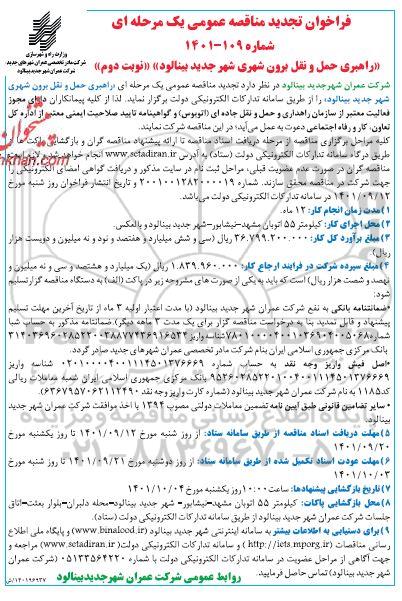 فراخوان تجدید مناقصه عمومی یک مرحله ای
شماره ۱۰۹-۱۴۰۱
«راهبری حمل و نقل برون شهری شهر جدید بینالود» «نوبت دوم»
وزارت راه و شهرسازی
شرکت مادر تخصصی عمران شهرهای جدید
شرکت عمران شهر جدید بینالود
شرکت عمران شهرجدید بینالود در نظر دارد تجدید مناقصه عمومی یک مرحله ای «راهبری حمل و نقل برون شهری
شهر جدید بینالود» را از طریق سامانه تدارکات الکترونیکی دولت برگزار نماید. لذا از کلیه پیمانکاران دارای مجوز
فعالیت معتبر از سازمان راهداری و حمل و نقل جاده ای (اتوبوس) و گواهینامه تایید صلاحیت ایمنی معتبر از اداره کل
تعاون، کار و رفاه اجتماعی دعوت به عمل می‌آید؛ در این مناقصه شرکت نمایند.
کلیه مراحل برگزاری مناقصه از مرحله دریافت اسناد مناقصه تا ارائه پیشنهاد مناقصه گران و بازگشایی پاکت ها از
طریق درگاه سامانه تدارکات الکترونیکی دولت (ستاد) به آدرس www.setadiran.ir انجام خواهد شد. لازم است مناقصه
گران در صورت عدم عضویت قبلی، مراحل ثبت نام در سایت مذکور و دریافت گواهی امضای الکترونیکی را
جهت شرکت در مناقصه محقق سازند. شماره ۲۰۰۱۰۰۱۲۸۲۰۰۰۰۱۹ و تاریخ انتشار فراخوان روز شنبه مورخ
۱۴۰۱/۰۹/۱۲ در سامانه تدارکات الکترونیکی دولت می باشد.
۱) مدت زمان انجام کار: ۱۲ ماه.
۲) محل اجرای کار: کیلومتر ۵۵ اتوبان مشهد-نیشابور- شهر جدید بینالود و بالعکس.
۳) مبلغ برآورد کل کار: ۳۶.۷۹۹.۲۰۰.۰۰۰ ریال (سی و شش میلیارد و هفتصد و نود و نه میلیون و دویست هزار
ریال).
۴) مبلغ سپرده شرکت در فرایند ارجاع کار: ۱.۸۳۹.۹۶۰.۰۰۰ ریال (یک میلیارد و هشتصد و سی و نه میلیون و
نهصد و شصت هزار ریال) است که باید به یکی از صورت های مشروحه زیر در پاکت (الف) به دستگاه مناقصه گزار تسلیم
شود:
*ضمانتنامه بانکی به نفع شرکت عمران شهر جدید بینالود (با مدت اعتبار اولیه ۳ ماه از تاریخ آخرین مهلت تسلیم
پیشنهاد و قابل تمدید بنا به درخواست مناقصه گزار برای یک مدت ۳ ماهه دیگر).
بانک مرکزی جمهوری اسلامی ایران بنام شرکت مادر تخصصی عمران شهر های جدید صادر گردد.
*اصل فیش واریز وجه نقد به حساب شماره
بانک مرکزی جمهوری اسلامی ایران شعبه معاملات ریالی
کد ۱۱۸۵ به نام شرکت عمران شهر جدید بینالود
*سایر تضامین قانونی طبق آیین نامه تضمین معاملات دولتی مصوب ۱۳۹۴ با اخذ موافقت شرکت عمران شهر جدید
بینالود.
۵) مهلت دریافت اسناد مناقصه از طریق سامانه ستاد: از روز شنبه مورخ ۱۴۰۱/۰۹/۱۲ تا روز یکشنبه مورخ
۱۴۰۱/۰۹/۲۰
۶) مهلت عودت اسناد تکمیل شده از طریق سامانه ستاد: از روز دوشنبه مورخ ۱۴۰۱/۰۹/۲۱ تا روز شنبه مورخ
۱۴۰۱/۱۰/۰۳
۷) تاریخ بازگشایی پیشنهادها: ساعت ۱۰:۰۰ روز یکشنبه مورخ ۱۴۰۱/۱۰/۰۴
۸) محل بازگشایی پاکات: کیلومتر ۵۵ اتوبان مشهد-نیشابور- شهر جدید بینالود-محله دلبران-بلوار بعثت-اتاق
جلسات شرکت عمران شهر جدید بینالود و سامانه تدارکات الکترونیکی دولت (ستاد).
۹) برای دستیابی به اطلاعات بیشتر به سامانه اینترنتی شهر جدید بینالود (www.binalood.ir) و پایگاه ملی اطلاع
رسانی مناقصات (http://iets.mporg.ir) و سامانه تدارکات الکترونیکی دولت (www.setadiran.ir) مراجعه و
جهت آگاهی از مراحل عضویت در سامانه تدارکات الکترونیکی دولت (ستاد) با شماره ۰۵۱۳۳۵۶۴۲۲۰ (شرکت عمران
شهر جدید بینالود) تماس حاصل فرمایید.
روابط عمومی شرکت عمران شهرجدیدبینالود